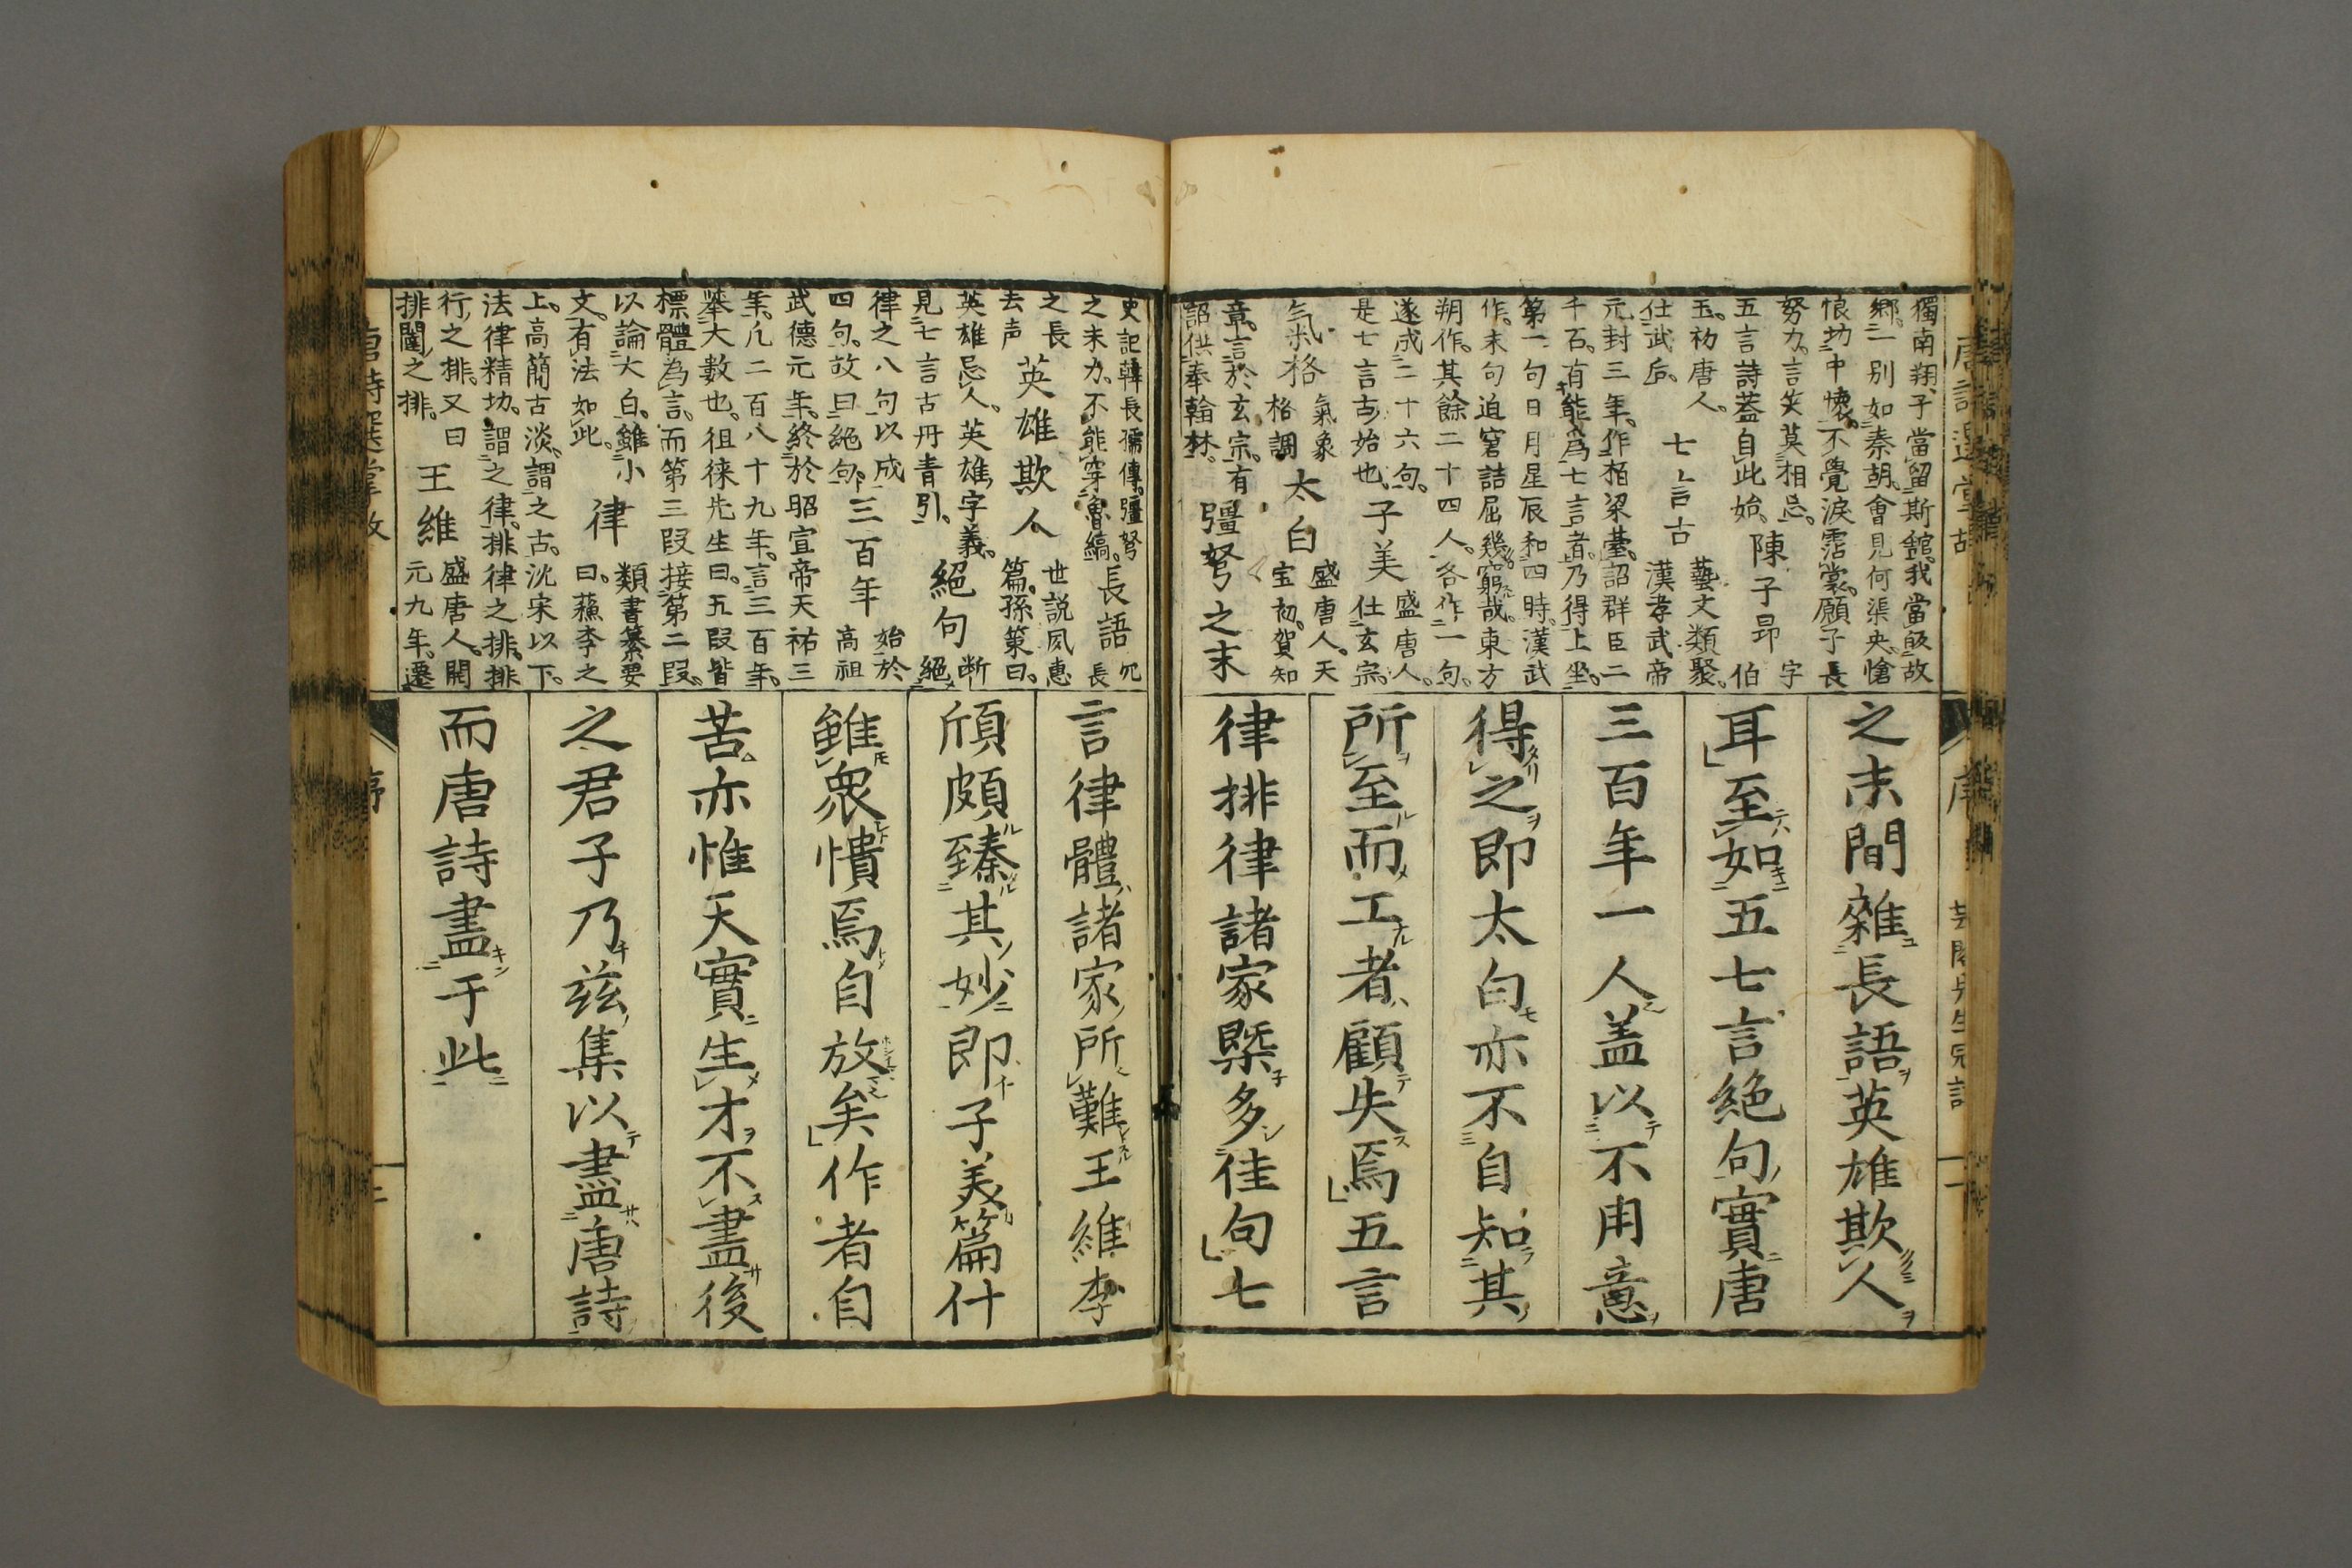 獨南翔、子當留斯館。我當皈故
郷。一別如秦胡。會見何渠央。愴
恨切中懷。不覺淚霑裳。願子長
努力。言笑莫相忌。
五言詩蓋自此始。
陳子昂
字
伯
玉。初唐人。
仕武后。
七言古
藝文類聚。
漢孝武帝
元封三年。作栢梁臺。詔群臣二
千石。有能爲七言者。乃得上坐。
第一句日月星辰和四時。漢武
作。末句迫窘詰屈幾窮哉。東方
朔作。其餘二十四人。各作一句。
遂成二十六句。
是七言古始也。
子美
盛唐人。
仕玄宗。
氣格
氣象
格調
太白
盛唐人。天
宝初。賀知
章。言於玄宗。有
詔供奉翰林。
彊弩之末
之末間雜長語英雄欺人
耳至如五七言絶句實唐
三百年一人盖以不用意
得之即太白亦不自知其
所至而工者顧失焉五言
律排律諸家槩多佳句七
史記韓長儒傳。彊弩
之末力。不能穿魯縞。
長語
冗
長
之長
去声
英雄欺人
世説夙惠
篇。孫策曰。
英雄忌人。英雄字義。
見七言古丹青引。
絕句
断
絕
律之八句以成
四句。故曰絕句
三百年
始於
高祖
武德元年。終於昭宣帝天祐三
年。凡二百八十九年。言三百年。
舉大數也。徂徠先生曰。五段皆
標體為言。而第三段接第二段。
以論大白。雖小
文。有法如此。
律
類書纂要
曰。蘓李之
上。高簡古淡。謂之古。沈宋以下。
法律精切。謂之律。排律之排。排
行之排。又曰
排闥之排。
王維
盛唐人。開
元九年。遷
言律體諸家所難王維李
頎頗臻其妙即子美篇什
雖衆憒焉自放矣作者自
苦亦惟天實生才不盡後
之君子乃茲集以盡唐詩
而唐詩盡于此